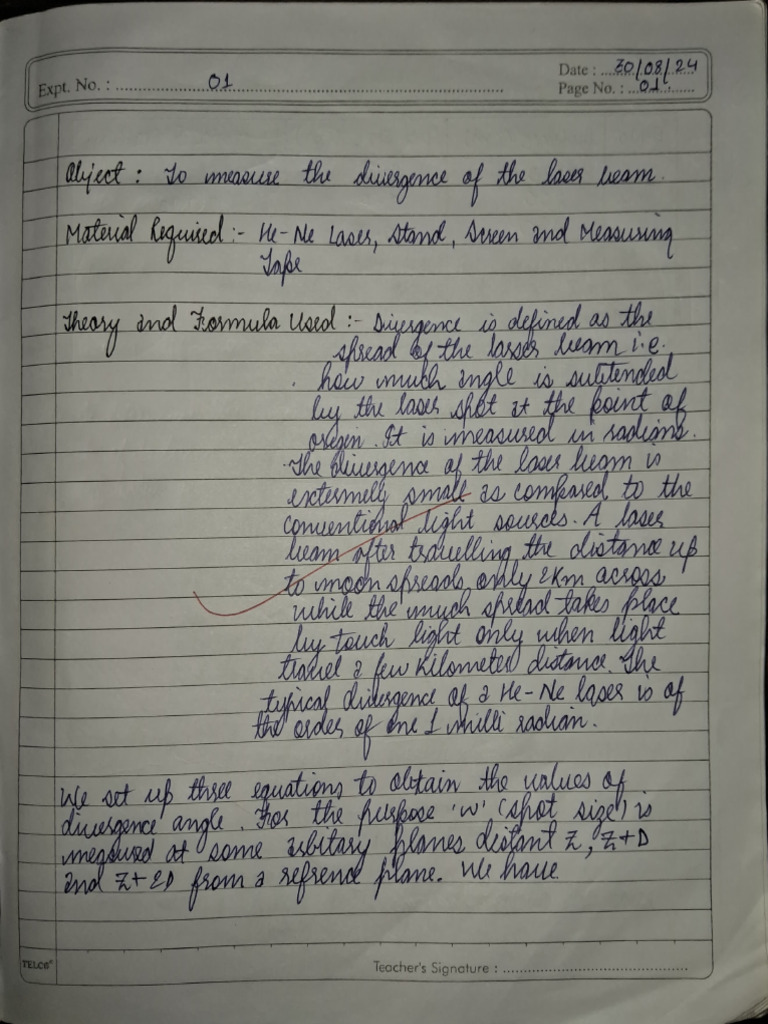 Expt. No. : 01
Date : 30/08/24
Page No. : 01
Object : To measure the divergence of the laser beam.
Material Required :- He-Ne Laser, Stand, Screen and Measuring
Tape
Theory and Formula Used :- Divergence is defined as the
spread of the lasser beam i.e.
how much angle is subtended
by the laser spot at the point of
oregen. It is measured in radians.
The divergence of the laser beam is
extermely small as compared to the
conventional light sources. A laser
beam after travelling the distance up
to moon spreads only 2km across
while the much spread takes place
by touch light only when light
travel a few Kilometer distance. The
typical divergence of a He-Ne laser is of
the order of one 1 milli radian.
We set up three equations to obtain the values of
divergence angle. For the perpose 'w' (spot size) is
measured at some arbitary planes distant Z, Z+D
and Z+2D from a refrence plane. We have
TELCO
Teacher's Signature :